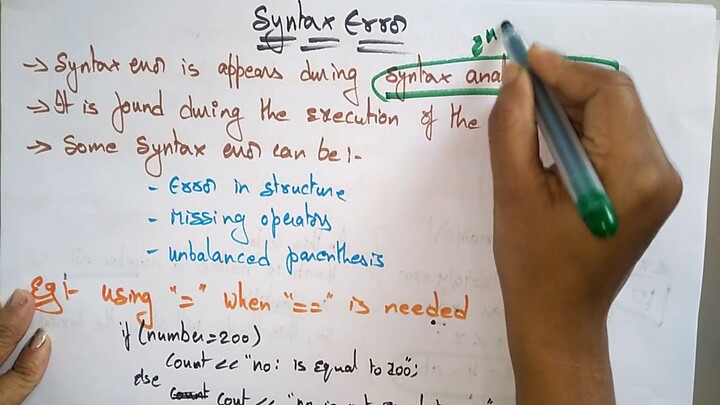 Syntax Error
2n
→ Syntax error is appears during syntax anal
→ It is found during the execution of the
→ Some Syntax error can be :-
- Error in structure
- Missing operators
- unbalanced parenthesis
Eg :- using "=" when "==" is needed
if (number=200)
count << "no: is equal to 200";
else
cout <<